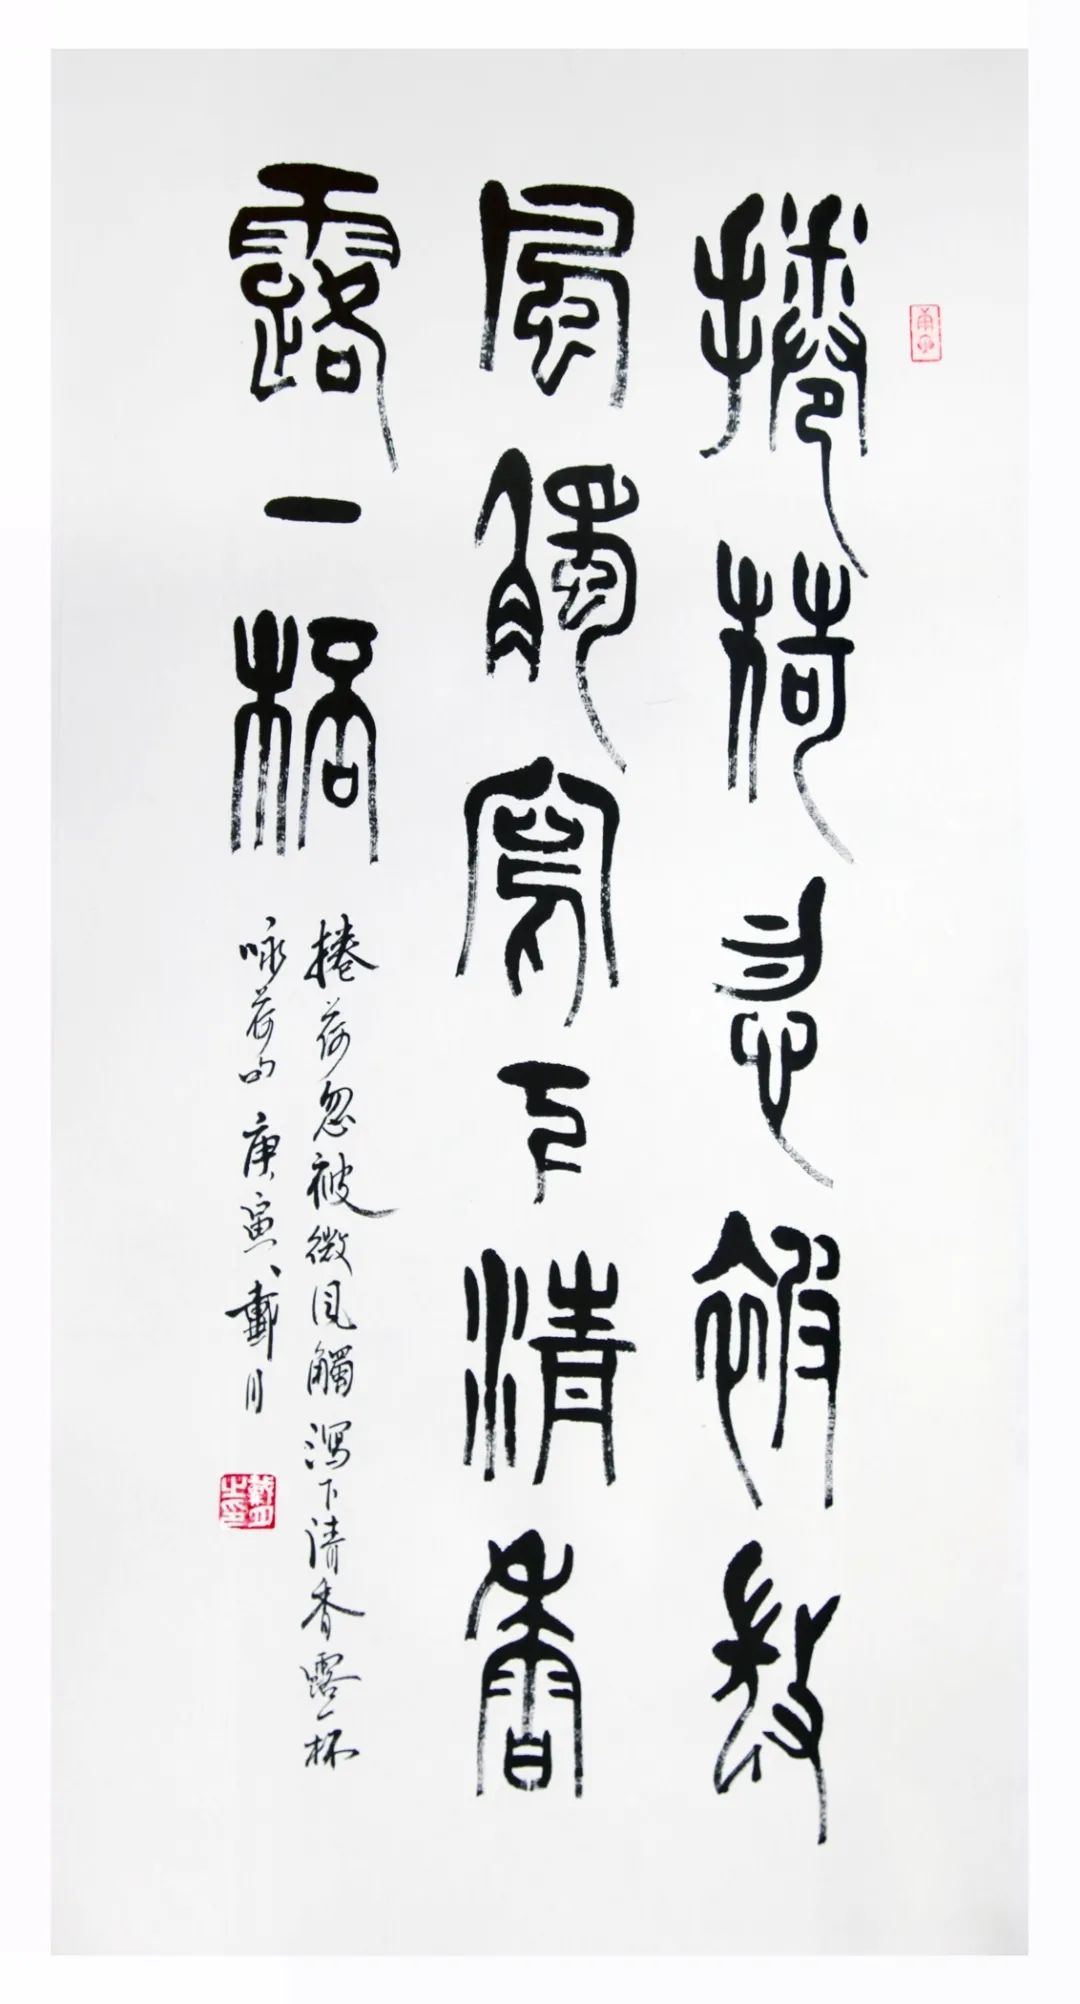 捲荷忽被微
風觸寫下清香
露一桮
捲荷忽被微風觸瀉下清香露一杯
咏荷句庚寅戴月